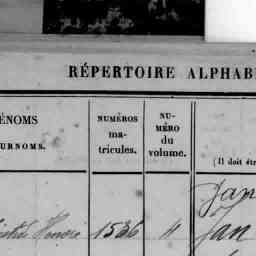 RÉPERTOIRE ALPHAB
ÉNOMS
URNOMS.
NUMÉROS
ma-
tricules.
NU-
MÉRO
du
volume.
(Il doit êtr
1536 4 Jan